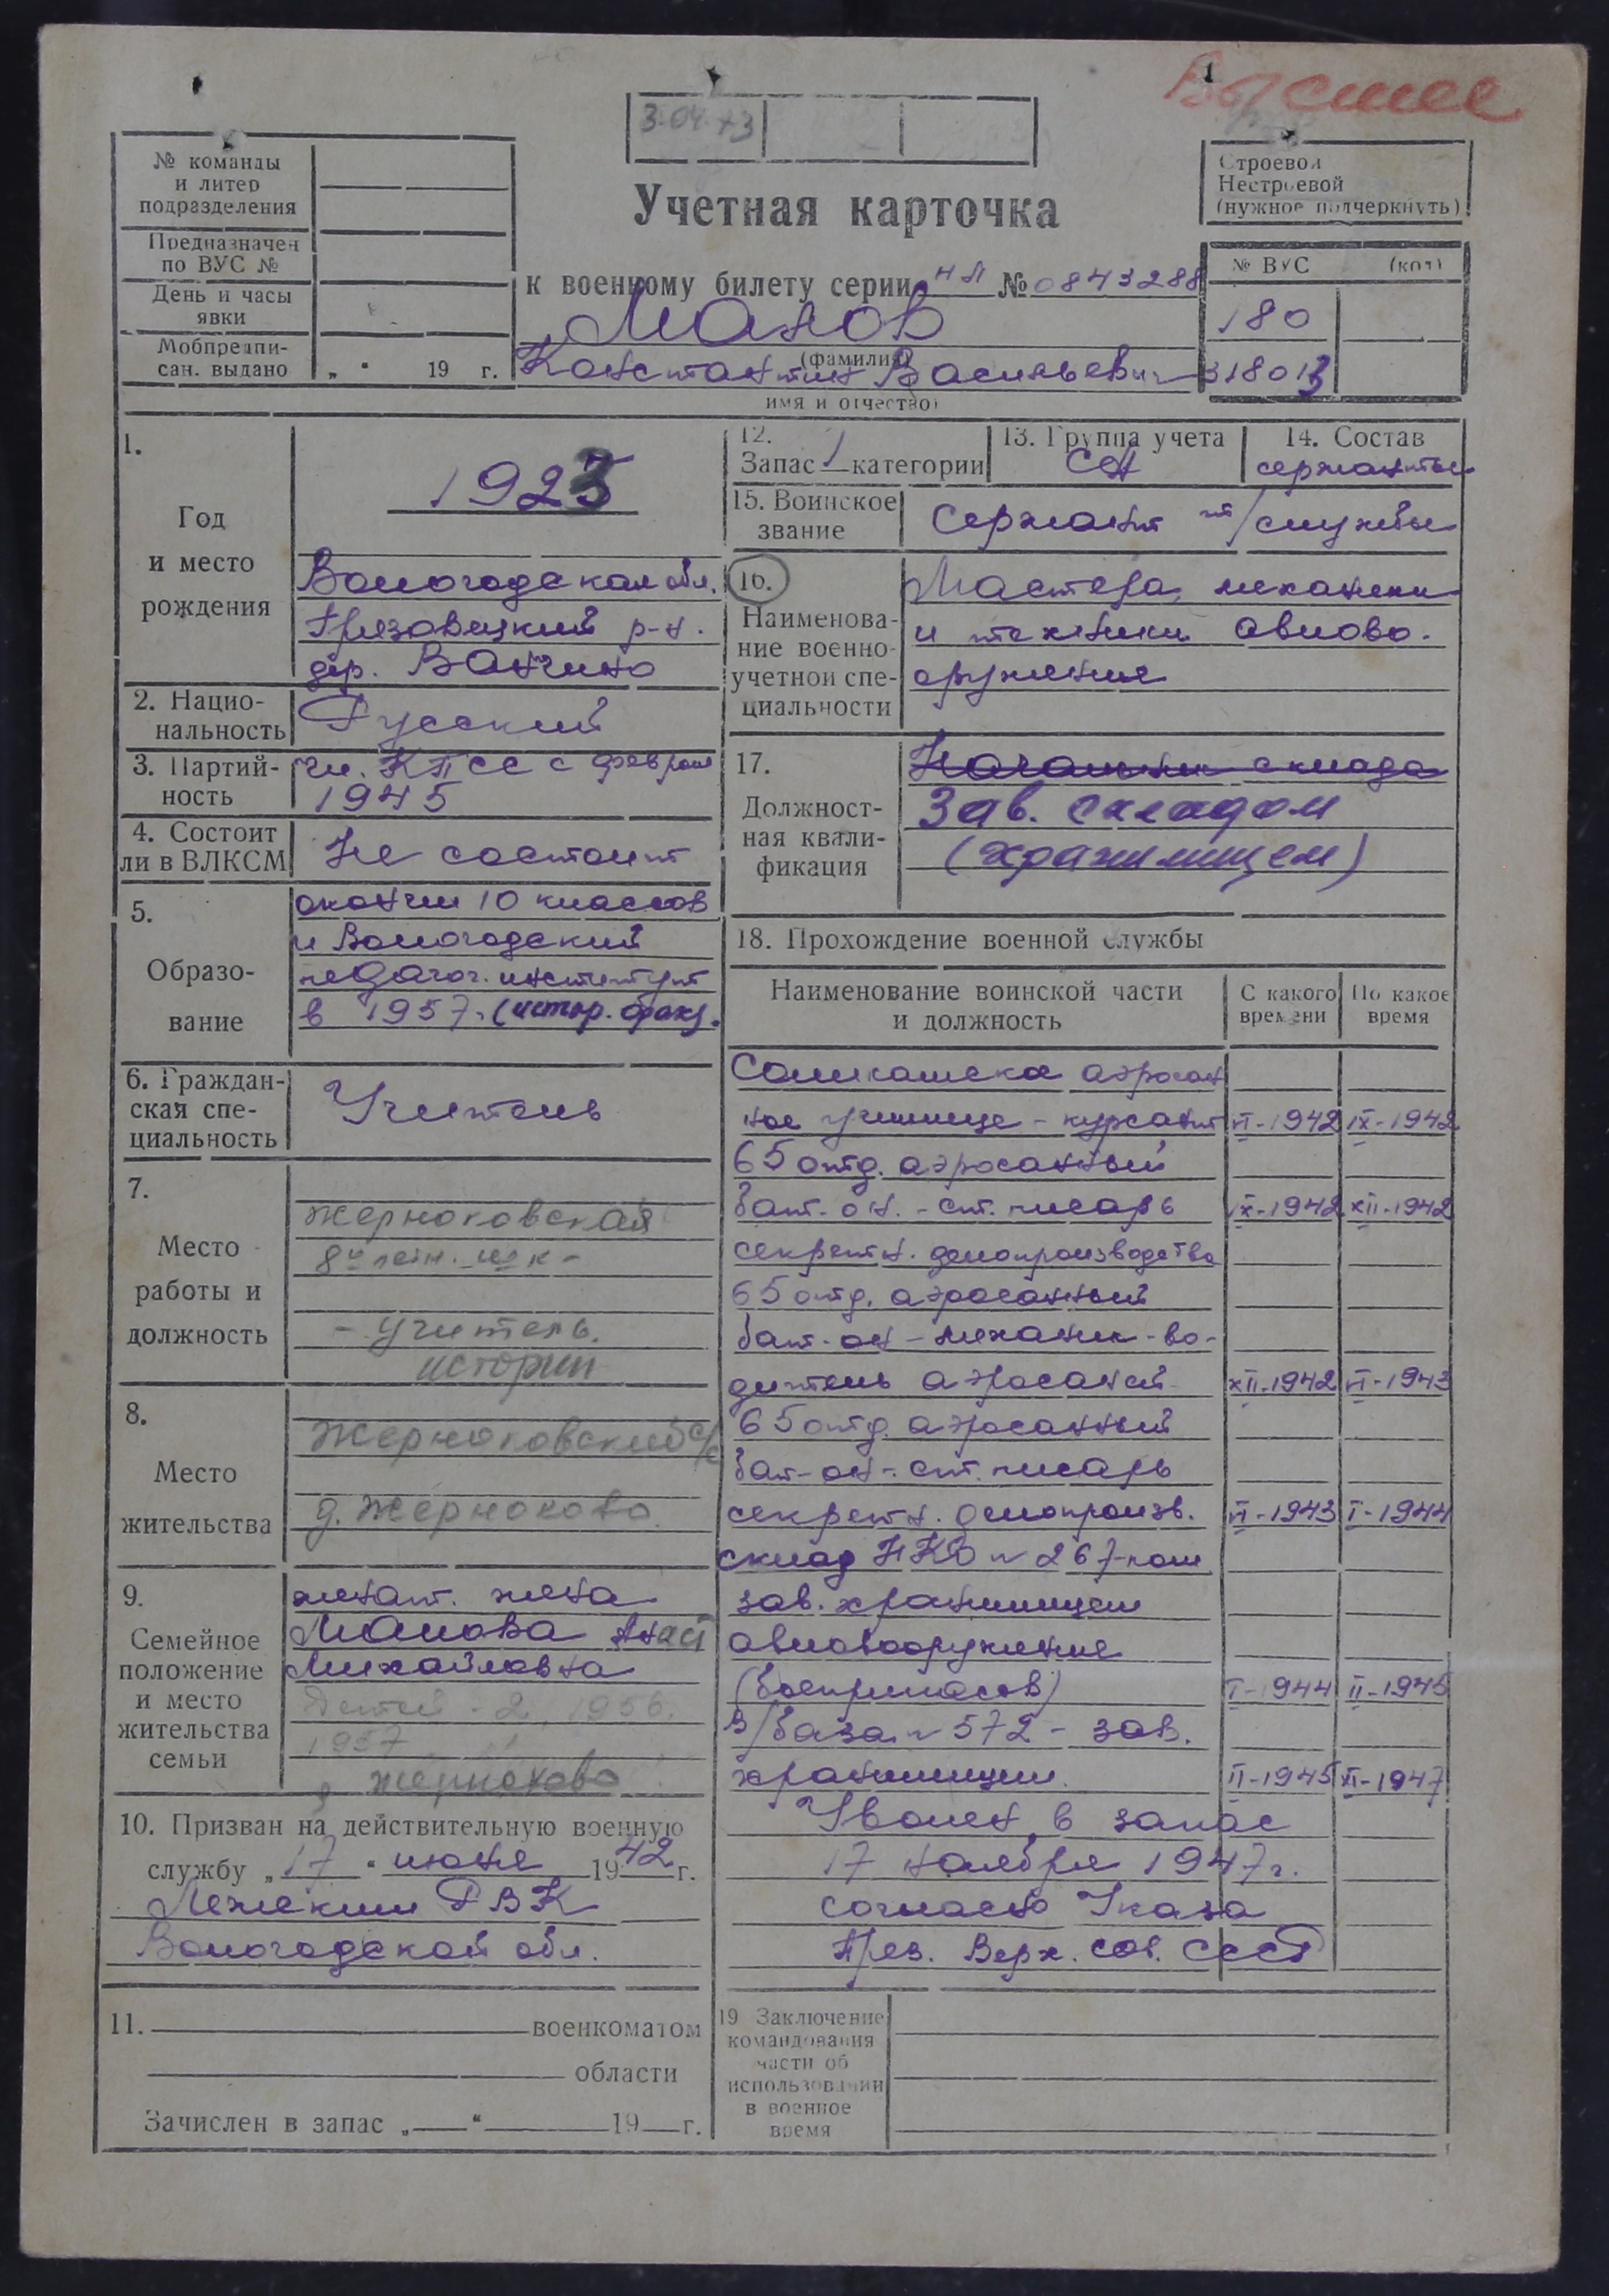 Высшее
3-04-73
№ команды
и литер
подразделения
Предназначен
по ВУС №
День и часы
явки
Мобпредпи-
сан. выдано „ “ 19 г.
Учетная карточка
к военному билету серии НЛ № 0843288
Малов
(фамилия)
Константин Васильевич
имя и отчество)
Строевой
Нестроевой
(нужное подчеркнуть)
№ ВУС (код)
180
318013
1.
Год
и место
рождения
1923
Вологодская обл.
Грязовецкий р-н.
дер. Ванчино
2. Нацио-
нальность
Русский
3. Партий-
ность
чл. КПСС с февраля
1945
4. Состоит
ли в ВЛКСМ
Не состоит
5.
Образо-
вание
окончил 10 классов
и Вологодский
педагог. институт
в 1957. (истор. фак).
6. Граждан-
ская спе-
циальность
Учитель
7.
Место
работы и
должность
Жерноковская
8и летн. шк-
- учитель.
истории
8.
Место
жительства
Жерноковский с/с
д. Жерноково.
9.
Семейное
положение
и место
жительства
семьи
женат. жена
Малова Анас
Михайловна
Детей - 2, 1956.
1957
д Жерноково
10. Призван на действительную военную
службу „17“ июня 1942 г.
Лежским РВК
Вологодской обл.
11. военкоматом
области
Зачислен в запас „ “ 19 г.
12.
Запас 1 категории
13. Группа учета
СА
14. Состав
сержанты
15. Воинское
звание
Сержант ит/службы
16.
Наименова-
ние военно-
учетной спе-
циальности
Мастера, механики
и техники авиово-
оружения
17.
Должност-
ная квали-
фикация
Начальник склада
Зав. складом
(хранилищем)
18. Прохождение военной службы
Наименование воинской части
и должность
С какого
времени
По какое
время
Соликамское аэросан
ное училище - курсант VI-1942 IX-1942
65 отд. аэросанный
бат-он. - ст. писарь IX-1942 XII-1942
секретн. делопроизводства
65 отд. аэросанный
бат-он - механик-во-
дитель аэросаней XII-1942 VI-1943
65 отд. аэросанный
бат-он - ст. писарь
секретн. делопроизв. VI-1943 I-1944
склад НКО № 267 -пом
зав. хранилищем
авиовооружение
(боеприпасов) I-1944 II-1945
В/база № 572 - зав.
хранилищем. II-1945 XI-1947
Уволен в запас
17 ноября 1947г.
согласно Указа
През. Верх. сов. СССР
19 Заключение
командования
части об
использовании
в военное
время